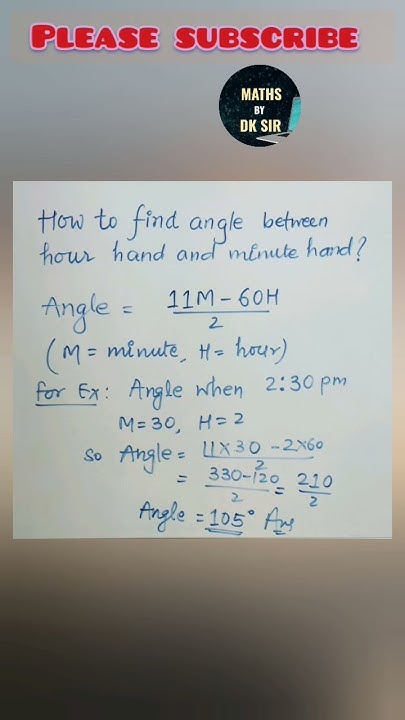 PLEASE SUBSCRIBE
MATHS
BY
DK SIR
How to find angle between
hour hand and minute hand?
Angle = 11M - 60H
2
(M = minute, H = hour)
for Ex: Angle when 2:30 pm
M = 30, H = 2
so Angle = 11×30 - 2×60
2
= 330-120 = 210
2 2
Angle = 105° Ans